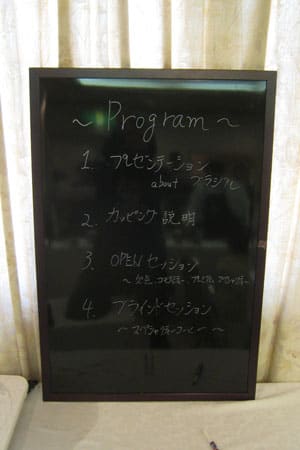 ~ Program ~
1. プレゼンテーション
about ブラジル
2. カッピング 説明
3. OPEN セッション
4. ブラインドセッション
~スペシャルティーコーヒー~